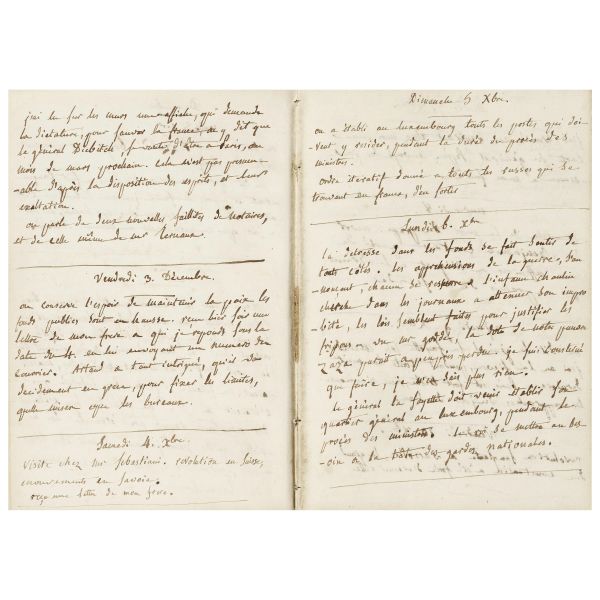 j'ai lu sur les murs une affiche, qui demande
la Dictature, pour sauver la france, on y dit que
le général Diebitch, se vante d'être à Paris, au
mois de mars prochain. Cela n'est pas presum-
-able d'après la disposition des esprits, et leurs
exaltation.
on parle de deux nouvelles faillites de notaires,
et de celle même de mr Ternaux.
Vendredi 3. Décembre.
on conserve l'espoir de maintenir la paix les
fonds publics sont en hausse. reçu hier soir une
lettre de mon frere à qui j'ai répondu sous la
date du 4. en lui envoyant un numero du
Courrier. Artaud a tant intrigué, qu'il va
decidement en grece, pour fixer les limites,
quelle misere que les bureaux.
Samedi 4. Xbre.
Visite chez mr Sebastiani. revolution en Suisse,
mouvements en Savoie.
reçu une lettre de mon frere.
Dimanche 5 Xbre.
on a établi au luxembourg touts les postes qui doi-
-vent y resider, pendant la durée du procès des
ministres.
ordre iteratif donné a touts les russes qui se
trouvent en france, d'en sortir
Lundi 6. Xbre
la detresse dans les fonds se fait sentir de
touts côtés. les apprehensions de la guerre, d'un
cherche dans les journaux a attenuer son impro-
-bité, les lois semblent faites pour justifier les
fripons. la dote de notre pauvre
Zaza parait a peu près perdue. je suis consterné
que faire, je n'en sais plus rien.
le général la fayette doit venir établir son
quartier général au luxembourg, pendant le
procès des ministres. de mettre au bes-
-oin a la tête des gardes nationales.